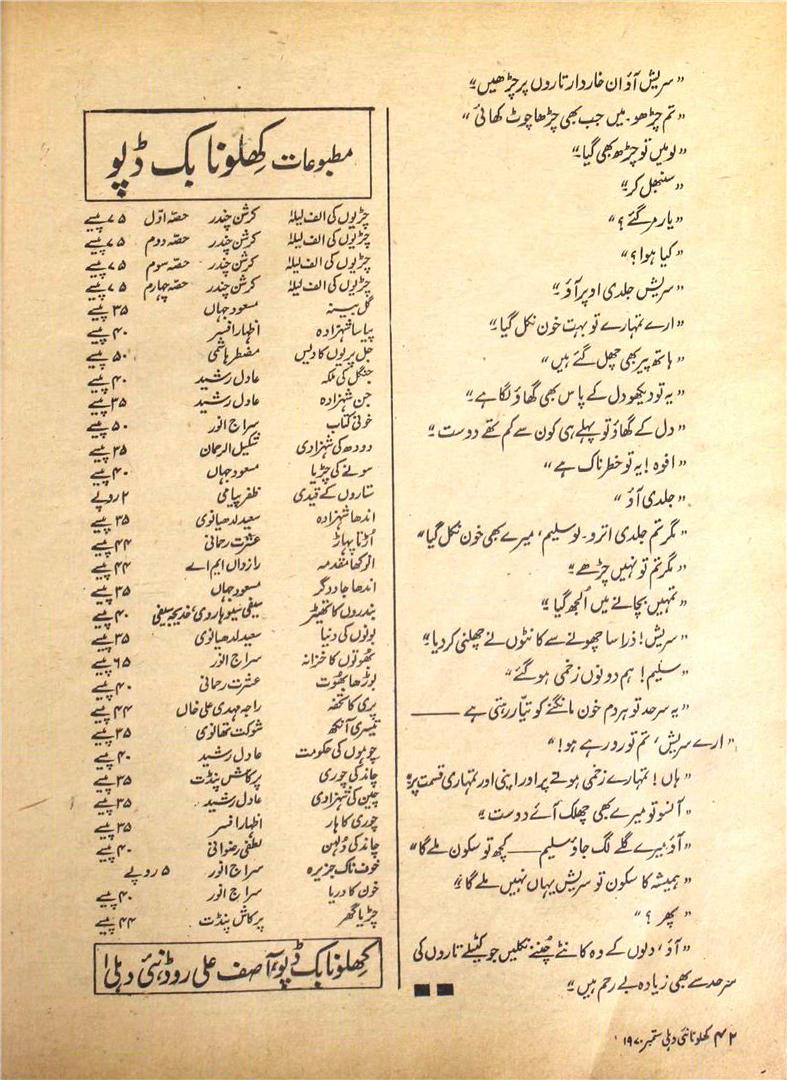 ”سریش آؤ ان خاردار تاروں پر چڑھیں“
”تم چڑھو۔ میں جب بھی چڑھا چوٹ کھائی“
”لو میں تو چڑھ بھی گیا“
”سنبھل کر“
”یار مر گئے؟“
”کیا ہوا؟“
”سریش جلدی اوپر آؤ“
”ارے تمہارے تو بہت خون نکل گیا“
”ہاتھ پیر بھی چھل گئے ہیں“
”یہ تو دیکھو دل کے پاس بھی گھاؤ لگا ہے“
”دل کے گھاؤ تو پہلے ہی کون سے کم تھے دوست“
”افوہ! یہ تو خطرناک ہے“
”جلدی آؤ“
”مگر تم جلدی اترو۔ لو سلیم، میرے بھی خون نکل گیا“
”مگر تم تو نہیں چڑھے“
”تمہیں بچانے میں اُلجھ گیا“
”سریش! ذرا سا چھونے سے کانٹوں نے چھلنی کر دیا“
”سلیم! ہم دونوں زخمی ہو گئے“
”یہ سرحد تو ہر دم خون مانگنے کو تیار رہتی ہے ——
”ارے سریش، تم تو رو رہے ہو!“
”ہاں! تمہارے زخمی ہونے پر اور اپنی اور تمہاری قسمت پر“
”آنسو تو میرے بھی چھلک آئے دوست“
”آؤ میرے گلے لگ جاؤ سلیم —— کچھ تو سکون ملے گا“
”ہمیشہ کا سکون تو سریش یہاں نہیں ملے گا“
”پھر؟“
”آؤ، دلوں کے وہ کانٹے چُننے نکلیں جو کٹیلے تاروں کی
سرحد سے بھی زیادہ بے رحم ہیں“
مطبوعات کھلونا بک ڈپو
چڑیوں کی الف لیلیٰ کرشن چندر حصہ اوّل ۷۵ پیسے
چڑیوں کی الف لیلیٰ کرشن چندر حصہ دوم ۷۵ پیسے
چڑیوں کی الف لیلیٰ کرشن چندر حصہ سوم ۷۵ پیسے
چڑیوں کی الف لیلیٰ کرشن چندر حصہ چہارم ۷۵ پیسے
گل بینہ مسعود جہاں ۳۵ پیسے
پیاسا شہزادہ اظہار افسر ۴۰ پیسے
جل پریوں کا دیس مضطر ہاشمی ۵۰ پیسے
جنگل کی ملکہ عادل رشید ۴۰ پیسے
جن شہزادہ عادل رشید ۳۵ پیسے
خونی کتاب سراج انور ۵۰ پیسے
دودھ کی شہزادی شکیل الرحمان ۳۵ پیسے
سونے کی چڑیا مسعود جہاں ۴۰ پیسے
ستاروں کے قیدی ظفر پیامی ۲ روپے
اندھا شہزادہ سعید لدھیانوی ۳۵ پیسے
اُڑتا پہاڑ عشرت رحمانی ۴۴ پیسے
انوکھا مقدمہ رازداں ایم اے ۴۴ پیسے
اندھا جادوگر مسعود جہاں ۳۵ پیسے
بندروں کا تھیٹر سیفی سیوہاروی، خدیجہ سیفی ۴۰ پیسے
بونوں کی دنیا سعید لدھیانوی ۳۵ پیسے
بھوتوں کا خزانہ سراج انور ۶۵ پیسے
بوڑھا بھوت عشرت رحمانی ۴۰ پیسے
پری کا تحفہ راجہ مہدی علی خاں ۴۴ پیسے
تیسری آنکھ شوکت تھانوی ۳۵ پیسے
چوہوں کی حکومت عادل رشید ۴۰ پیسے
چاند کی چوری پرکاش پنڈت ۳۵ پیسے
چین کی شہزادی عادل رشید ۳۵ پیسے
چوری کا ہار اظہار افسر ۳۵ پیسے
چاند کی دُلہن لطفی رضوانی ۴۰ پیسے
خوف ناک جزیرہ سراج انور ۵ روپے
خون کا دریا سراج انور ۴۰ پیسے
چڑیا گھر پرکاش پنڈت ۴۴ پیسے
کھلونا بک ڈپو، آصف علی روڈ، نئی دہلی ۱
۴۲ کھلونا نئی دہلی ستمبر ۱۹۷۰